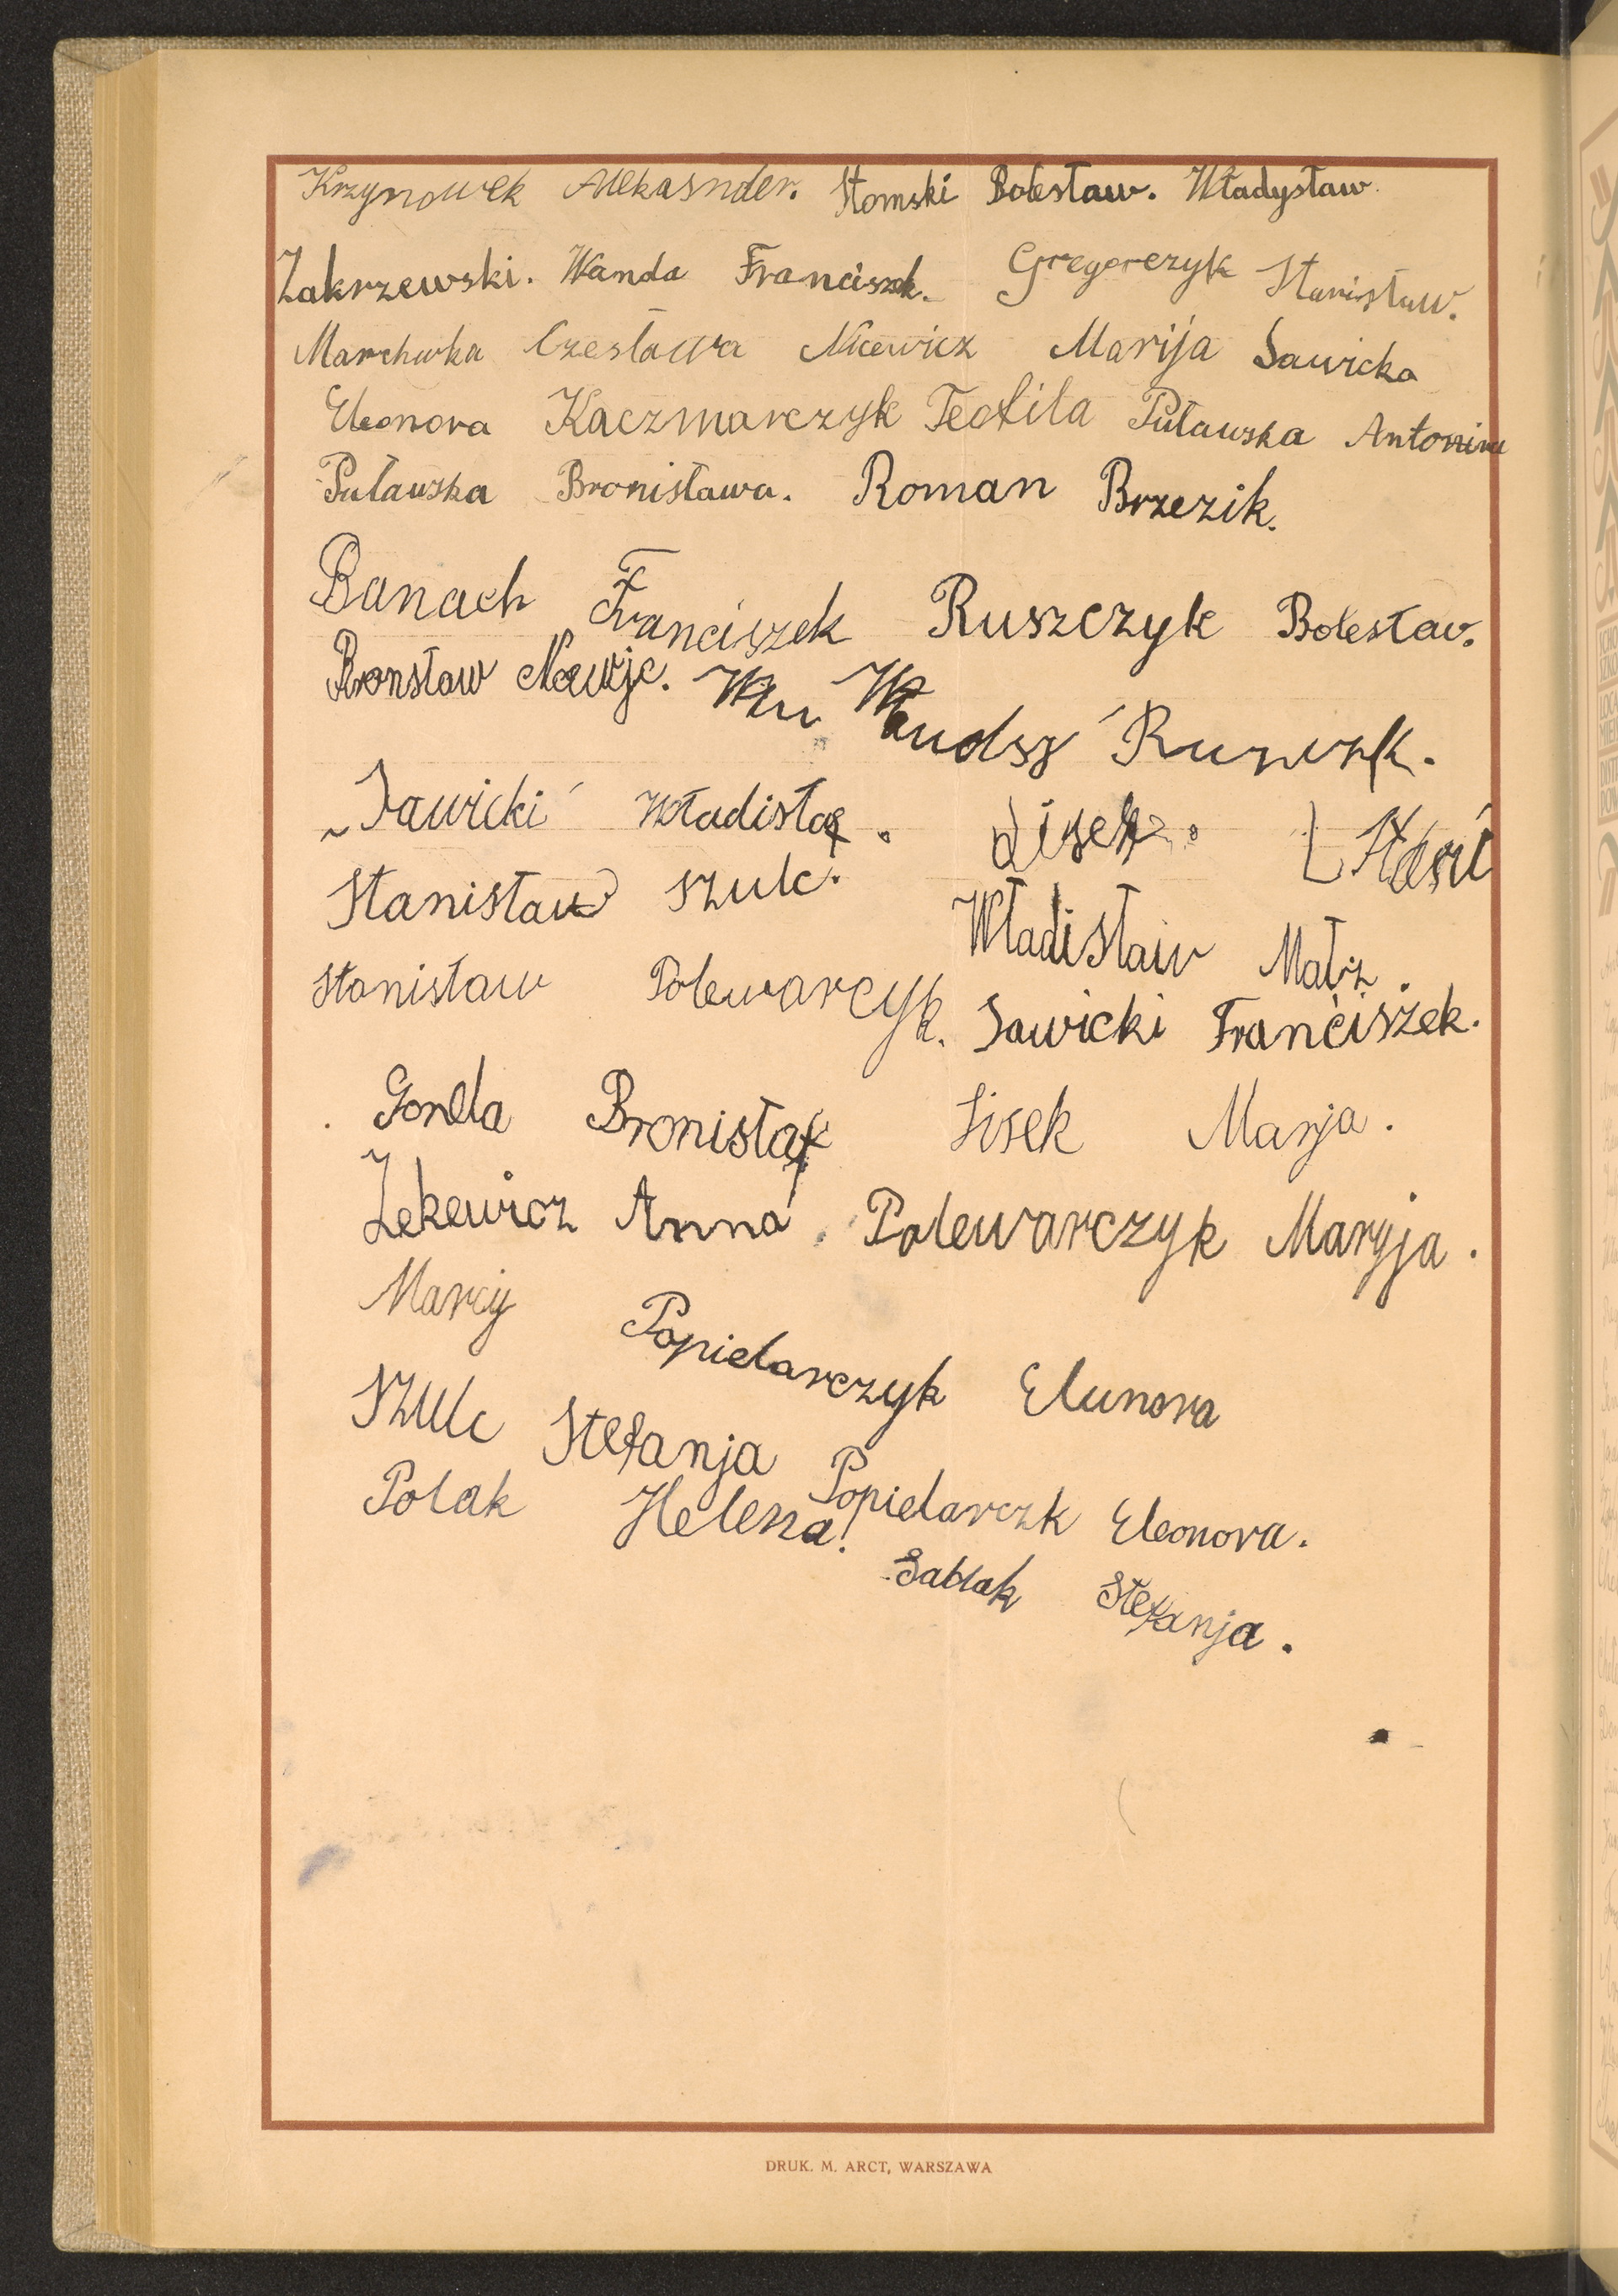 Krzynowek Alekasnder. Słomski Bolesław. Władysław
Zakrzewski. Wanda Franciszek. Gregorczyk Stanisław.
Marchwka Czesława Nicewicz Marija Sawicka
Eleonora Kaczmarczyk Teofila Puławska Antonina
Puławska Bronisława. Roman Brzezik.
Banach Franciszek Ruszczyk Bolesław.
Bronsław
Sawicki Władisław. Lisek.
Stanisław Szulc.
Władisław
Stanisław Polewarcyk. Sawicki Franciszek.
Gonela Bronisław Lisek Marja.
Zekewicz Anna. Polewarczyk Maryja.
Marcij Popielarczyk Elunora
Szulc Stefanja
Polak Helena! Popielarczk Eleonora.
Sablak Stefanja.
DRUK. M. ARCT, WARSZAWA